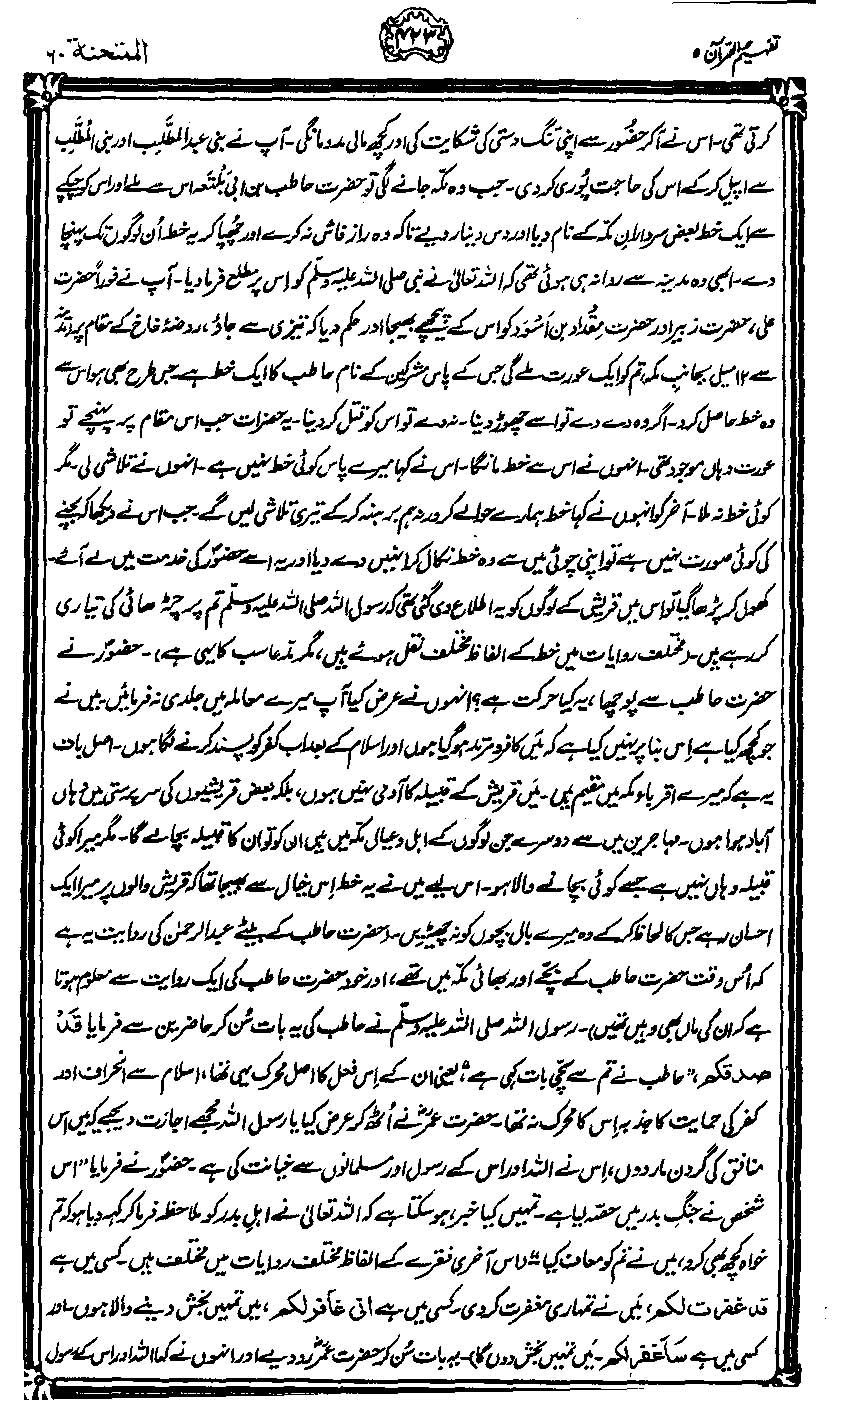 تفہیم القرآن ۵
۴۲۳
الممتحنۃ ۶۰
کرتی تھی۔ اس نے آکر حضورؐ سے اپنی تنگ دستی کی شکایت کی اور کچھ مالی مدد مانگی۔ آپ نے بنی عبدالمطَّلِب اور بنی المُطَّلِب
سے اپیل کر کے اس کی حاجت پوری کر دی۔ جب وہ مکہ جانے لگی تو حضرت حاطب بن ابی بَلْتَعہ اس سے ملے اور اس کو چپکے
سے ایک خط بعض سردارانِ مکہ کے نام دیا اور دس دینار دیے تاکہ وہ راز فاش نہ کرے اور چھپا کر یہ خط اُن لوگوں تک پہنچا
دے۔ ابھی وہ مدینہ سے روانہ ہی ہوئی تھی کہ اللہ تعالیٰ نے نبی صلی اللہ علیہ وسلم کو اس پر مطلع فرما دیا۔ آپ نے فوراً حضرت
علی، حضرت زبیر اور حضرت مِقْداد بن اَسْوَد کو اس کے پیچھے بھیجا اور حکم دیا کہ تیزی سے جاؤ، روضۂ خاخ کے مقام پر (مدینہ
سے ۱۲ میل بجانب مکہ) تم کو ایک عورت ملے گی جس کے پاس مشرکین کے نام حاطب کا ایک خط ہے۔ جس طرح بھی ہو اس سے
وہ خط حاصل کرو۔ اگر وہ دے دے تو اسے چھوڑ دینا۔ نہ دے تو اس کو قتل کر دینا۔ یہ حضرات جب اس مقام پر پہنچے تو
عورت وہاں موجود تھی۔ انہوں نے اس سے خط مانگا۔ اس نے کہا میرے پاس کوئی خط نہیں ہے۔ انہوں نے تلاشی لی۔ مگر
کوئی خط نہ ملا۔ آخر کو انہوں نے کہا خط ہمارے حوالے کرو ورنہ ہم برہنہ کر کے تیری تلاشی لیں گے۔ جب اس نے دیکھا کہ بچنے
کی کوئی صورت نہیں ہے تو اپنی چوٹی میں سے وہ خط نکال کر انہیں دے دیا اور یہ اسے حضورؐ کی خدمت میں لے آئے۔
کھول کر پڑھا گیا تو اس میں قریش کے لوگوں کو یہ اطلاع دی گئی تھی کہ رسول اللہ صلی اللہ علیہ وسلم تم پر چڑھائی کی تیاری
کر رہے ہیں۔ (مختلف روایات میں خط کے الفاظ مختلف نقل ہوئے ہیں، مگر مدعا سب کا یہی ہے)۔ حضورؐ نے
حضرت حاطب سے پوچھا، یہ کیا حرکت ہے؟ انہوں نے عرض کیا آپ میرے معاملہ میں جلدی نہ فرمائیں۔ میں نے
جو کچھ کیا ہے اِس بنا پر نہیں کیا ہے کہ میں کافر و مرتد ہو گیا ہوں اور اسلام کے بعد اب کفر کو پسند کرنے لگا ہوں۔ اصل بات
یہ ہے کہ میرے اقرباء مکہ میں مقیم ہیں۔ میں قریش کے قبیلہ کا آدمی نہیں ہوں، بلکہ بعض قریشیوں کی سرپرستی میں وہاں
آباد ہوا ہوں۔ مہاجرین میں سے دوسرے جن لوگوں کے اہل و عیال مکہ میں ہیں ان کو تو ان کا قبیلہ بچا لے گا۔ مگر میرا کوئی
قبیلہ وہاں نہیں ہے جسے کوئی بچانے والا ہو۔ اس لیے میں نے یہ خط اِس خیال سے بھیجا تھا کہ قریش والوں پر میرا ایک
احسان رہے جس کا لحاظ کر کے وہ میرے بال بچوں کو نہ چھیڑیں۔ (حضرت حاطب کے بیٹے عبدالرحمٰن کی روایت یہ ہے
کہ اُس وقت حضرت حاطب کے بچے اور بھائی مکہ میں تھے، اور خود حضرت حاطب کی ایک روایت سے معلوم ہوتا
ہے کہ ان کی ماں بھی وہیں تھیں)۔ رسول اللہ صلی اللہ علیہ وسلم نے حاطب کی یہ بات سُن کر حاضرین سے فرمایا قَدْ
صدقکم، "حاطب نے تم سے سچی بات کہی ہے"، یعنی ان کے اِس فعل کا اصل محرک یہی تھا، اسلام سے انحراف اور
کفر کی حمایت کا جذبہ اِس کا محرک نہ تھا۔ حضرت عمرؓ نے اُٹھ کر عرض کیا یا رسول اللہ مجھے اجازت دیجیے کہ میں اس
منافق کی گردن مار دوں، اِس نے اللہ اور اس کے رسول اور مسلمانوں سے خیانت کی ہے۔ حضورؐ نے فرمایا "اس
شخص نے جنگِ بدر میں حصہ لیا ہے۔ تمہیں کیا خبر، ہو سکتا ہے کہ اللہ تعالیٰ نے اہلِ بدر کو ملاحظہ فرما کر کہہ دیا ہو کہ تم
خواہ کچھ بھی کرو، میں نے تم کو معاف کیا"۔ (اس آخری فقرے کے الفاظ مختلف روایات میں مختلف ہیں۔ کسی میں ہے
قد غفرت لکم، میں نے تمہاری مغفرت کر دی۔ کسی میں ہے انی غافر لکم، میں تمہیں بخش دینے والا ہوں۔ اور
کسی میں ہے سَاَغفر لکم۔ میں تمہیں بخش دوں گا)۔ یہ بات سُن کر حضرت عمرؓ رو دیے اور انہوں نے کہا اللہ اور اس کے رسول